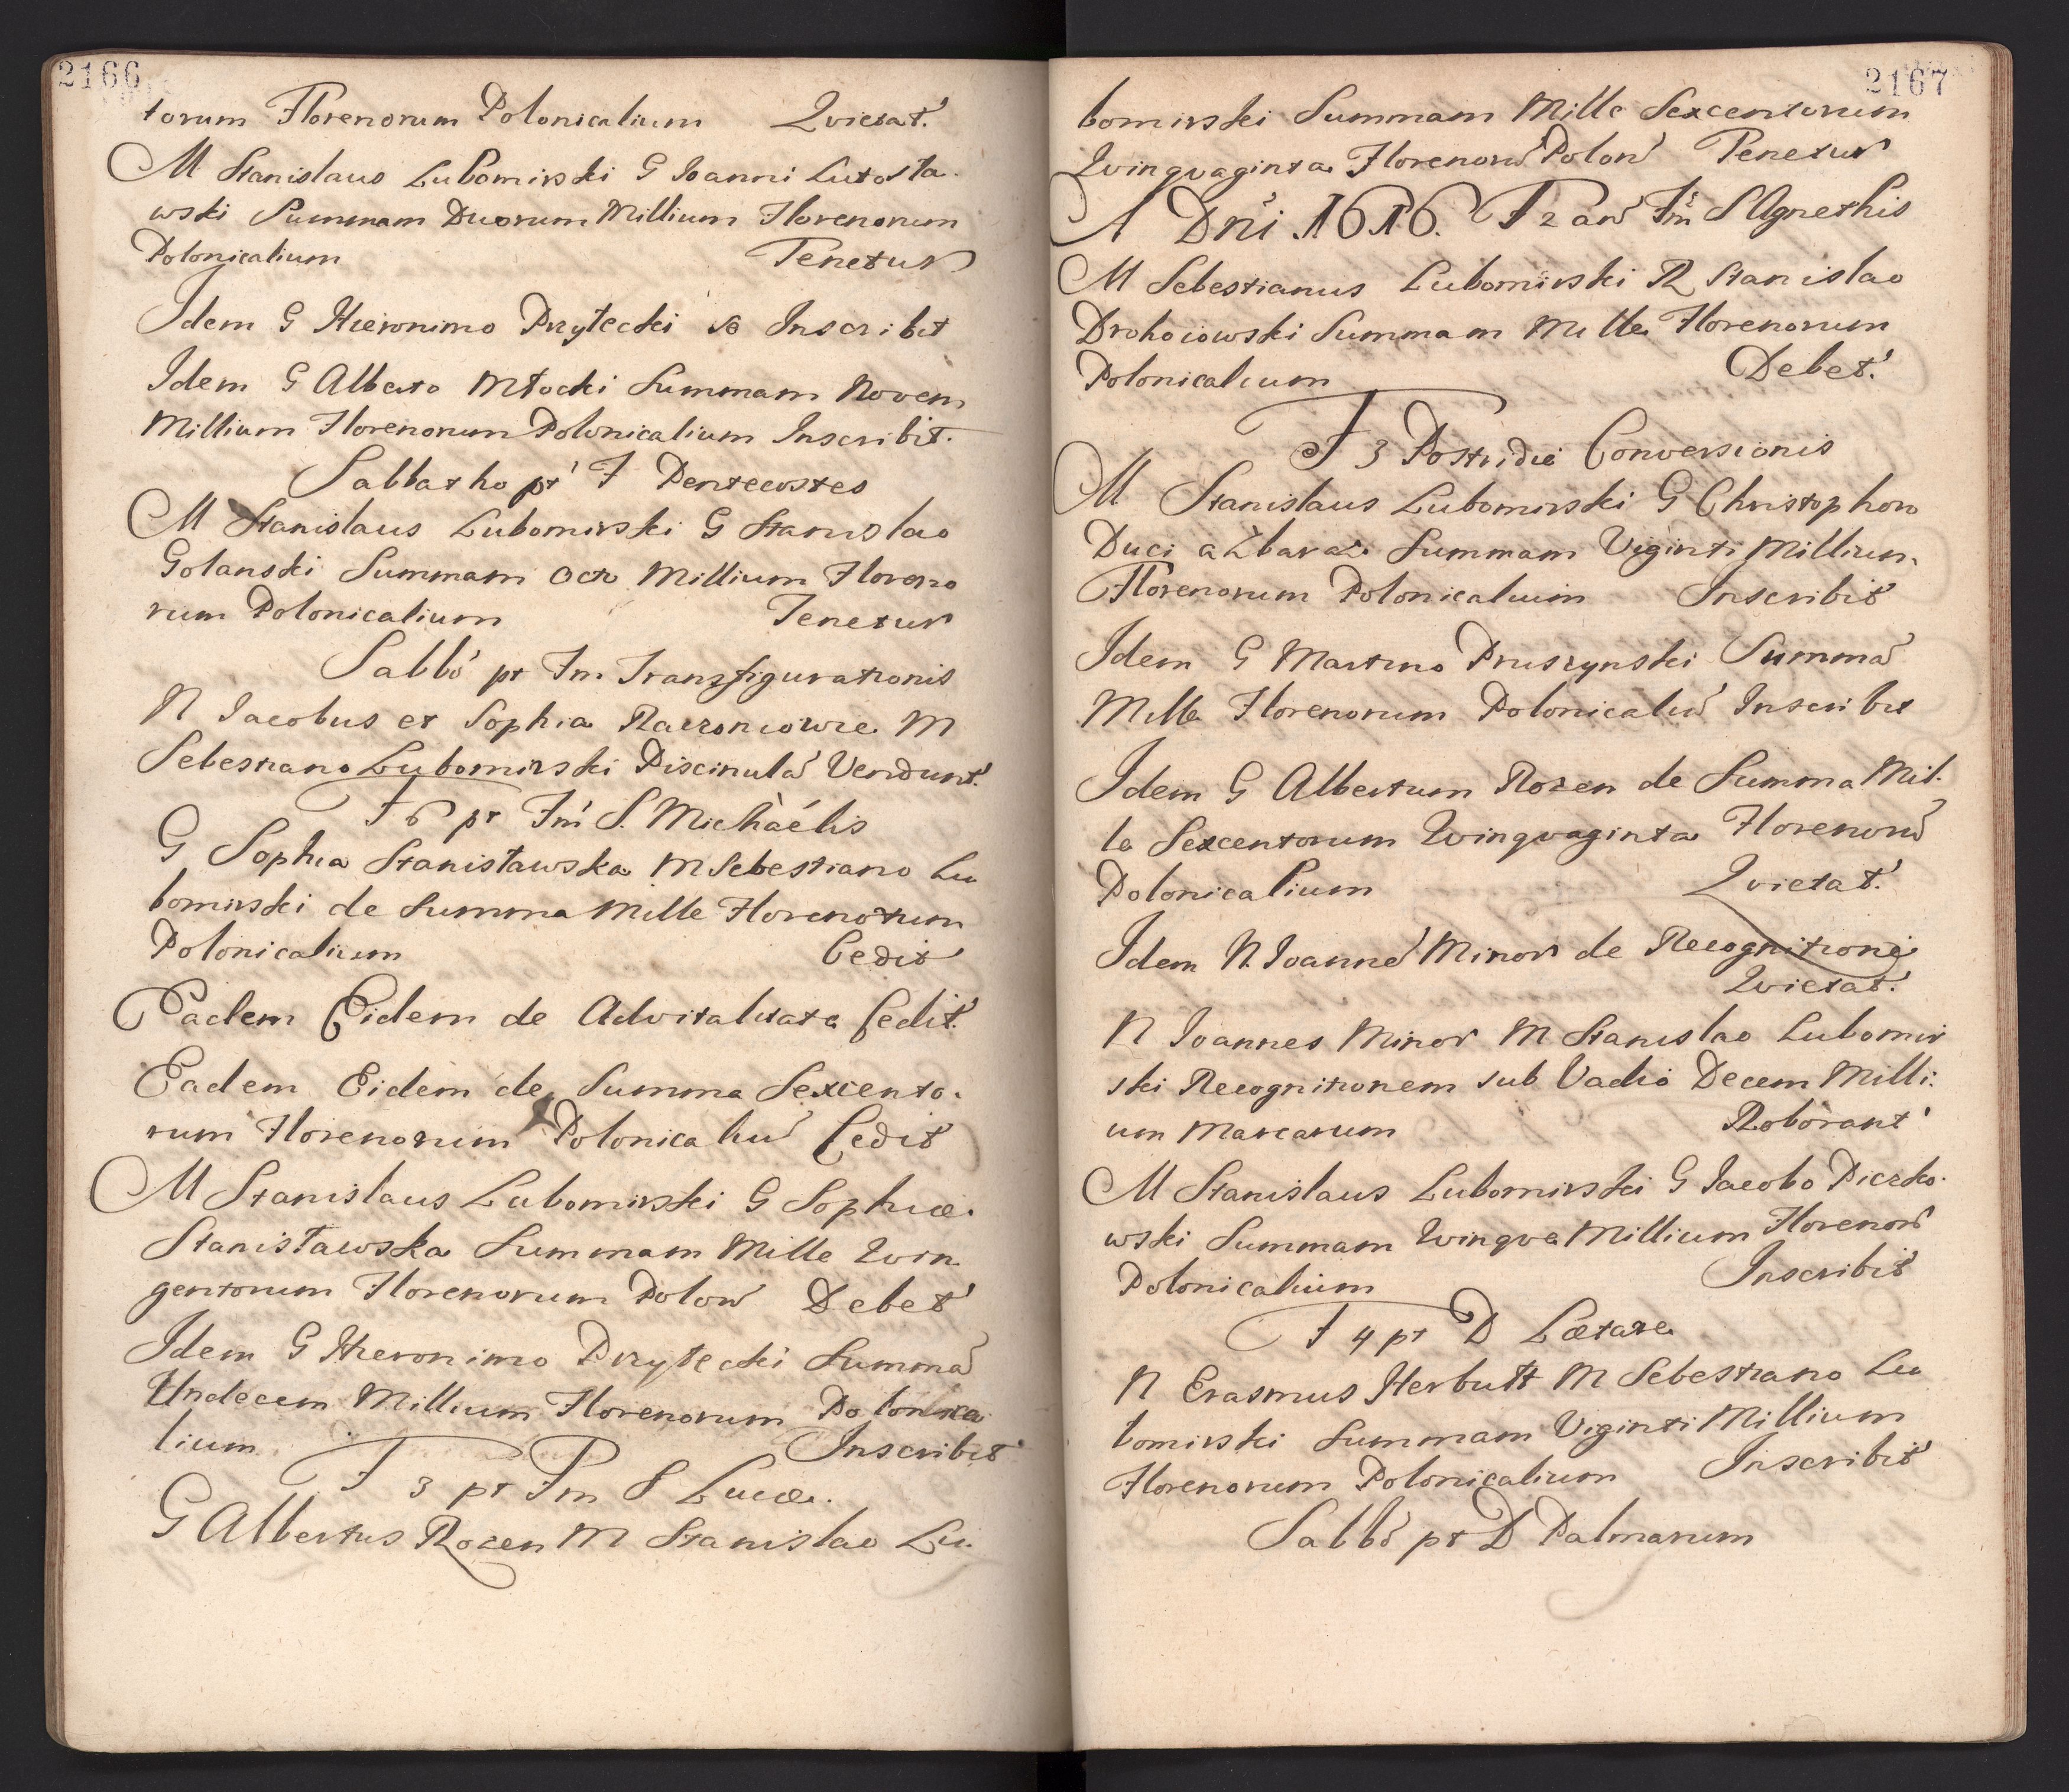 2166
torum Florenorum Polonicalium Qvietat.
M Stanislaus Lubomirski G Ioanni Lutosta-
wski Summam Duorum Millium Florenorum
Polonicalium Tenetur
Idem G Hieronimo Przyłecki se Inscribit
Idem G Alberto Młocki Summam Novem
Millium Florenorum Polonicalium Inscribit.
Sabbatho pt F Pentecostes
M Stanislaus Lubomirski G Stanislao
Golanski Summam Octo Millium Floreno
rum Polonicalium Tenetur
Sabbo pt Fm Transfigurationis
N Iacobus et Sophia M
Sebestiano Lubomirski Piscinula Vendunt.
F 6 pt Fm S. Michäélis
G Sophia Stanisławska M Sebestiano Lu
bomirski de Summa Mille Florenorum
Polonicalium Cedit
Eadem Eidem de Advitalitate Cedit.
Eadem Eidem de Summa Sexcento-
rum Florenorum Polonicaliu Cedit
M Stanislaus Lubomirski G Sophiæ
Stanisławska Summam Mille Qvin
gentorum Florenorum Polon Debet
Idem G Hieronimo Przyłecki Summa
Undecem Millium Florenorum Polonica
lium Inscribit
F 3 pt Fm S Lucæ.
G Albertus Rozen M Stanislao Lu
2167
bomirski Summam Mille Sexcentorum
Qvinqvaginta Florenoru Polon Tenetur
A Dni 1616. F 2 an Fm S Agnethis
M Sebestianus Lubomirski R Stanislao
Drohoiowski Summam Mille Florenorum
Polonicalium Debet.
F 3 Postridie Conversionis
M Stanislaus Lubomirski G Christophoro
Duci a Zbaraz Summam Viginti Millium
Florenorum Polonicalium Inscribit
Idem G Martino Pruszynski Summa
Mille Florenorum Polonicaliu Inscribit
Idem G Albertum Rozen de Summa Mil-
le Sexcentorum Qvinqvaginta Florenoru
Polonicalium Qvietat.
Idem N. Ioanne Minor de Recognitione
Qvietat.
N Ioannes Minor M Stanislao Lubomir
ski Recognitionem sub Vadio Decem Milli-
um Marcarum Roborant
M Stanislaus Lubomirski G Iacobo Pieczko-
wski Summam Qvinqve Millium Florenor
Polonicalium Inscribit
F 4 pt D Lætare
N Erasmus Herbutt M Sebestiano Lu
bomirski Summam Viginti Millium
Florenorum Polonicalium Inscribit
Sabbo pt D Palmarum